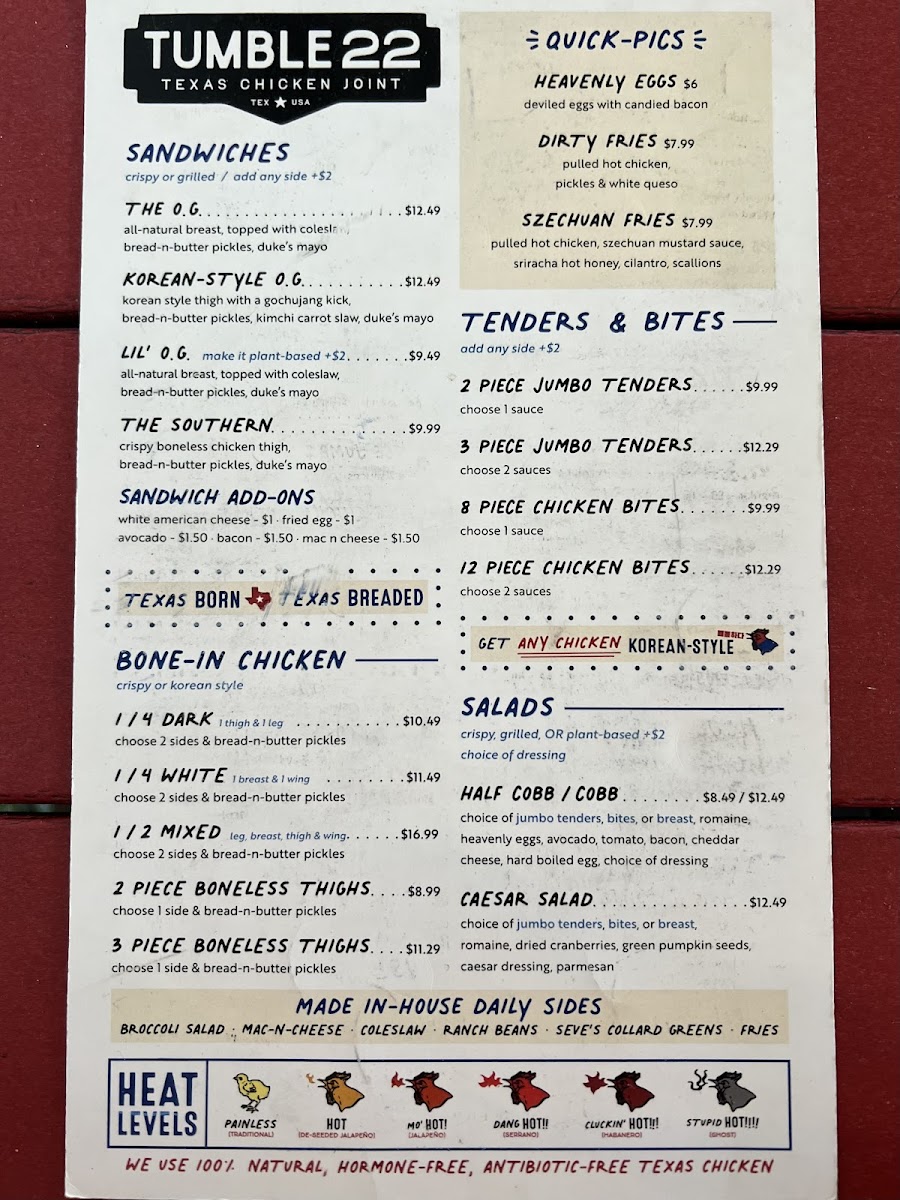 TUMBLE 22
TEXAS CHICKEN JOINT
TEX ★ USA
SANDWICHES
crispy or grilled / add any side +$2
THE O.G. $12.49
all-natural breast, topped with
bread-n-butter pickles, duke's mayo
KOREAN-STYLE O.G. $12.49
korean style thigh with a gochujang kick,
bread-n-butter pickles, kimchi carrot slaw, duke's mayo
LIL' O.G. make it plant-based +$2 $9.49
all-natural breast, topped with coleslaw,
bread-n-butter pickles, duke's mayo
THE SOUTHERN $9.99
crispy boneless chicken thigh,
bread-n-butter pickles, duke's mayo
SANDWICH ADD-ONS
white american cheese - $1 · fried egg - $1
avocado - $1.50 · bacon - $1.50 · mac n cheese - $1.50
TEXAS BORN TEXAS BREADED
BONE-IN CHICKEN
crispy or korean style
1/4 DARK 1 thigh & 1 leg $10.49
choose 2 sides & bread-n-butter pickles
1/4 WHITE 1 breast & 1 wing $11.49
choose 2 sides & bread-n-butter pickles
1/2 MIXED leg, breast, thigh & wing $16.99
choose 2 sides & bread-n-butter pickles
2 PIECE BONELESS THIGHS $8.99
choose 1 side & bread-n-butter pickles
3 PIECE BONELESS THIGHS $11.29
choose 1 side & bread-n-butter pickles
QUICK-PICS
HEAVENLY EGGS $6
deviled eggs with candied bacon
DIRTY FRIES $7.99
pulled hot chicken,
pickles & white queso
SZECHUAN FRIES $7.99
pulled hot chicken, szechuan mustard sauce,
sriracha hot honey, cilantro, scallions
TENDERS & BITES
add any side +$2
2 PIECE JUMBO TENDERS $9.99
choose 1 sauce
3 PIECE JUMBO TENDERS $12.29
choose 2 sauces
8 PIECE CHICKEN BITES $9.99
choose 1 sauce
12 PIECE CHICKEN BITES $12.29
choose 2 sauces
GET ANY CHICKEN KOREAN-STYLE
SALADS
crispy, grilled, OR plant-based +$2
choice of dressing
HALF COBB / COBB $8.49 / $12.49
choice of jumbo tenders, bites, or breast, romaine,
heavenly eggs, avocado, tomato, bacon, cheddar
cheese, hard boiled egg, choice of dressing
CAESAR SALAD $12.49
choice of jumbo tenders, bites, or breast,
romaine, dried cranberries, green pumpkin seeds,
caesar dressing, parmesan
MADE IN-HOUSE DAILY SIDES
BROCCOLI SALAD · MAC-N-CHEESE · COLESLAW · RANCH BEANS · SEVE'S COLLARD GREENS · FRIES
HEAT
LEVELS
PAINLESS
(TRADITIONAL)
HOT
(DE-SEEDED JALAPEÑO)
MO' HOT!
(JALAPEÑO)
DANG HOT!!
(SERRANO)
CLUCKIN' HOT!!!
(HABANERO)
STUPID HOT!!!!
(GHOST)
WE USE 100% NATURAL, HORMONE-FREE, ANTIBIOTIC-FREE TEXAS CHICKEN